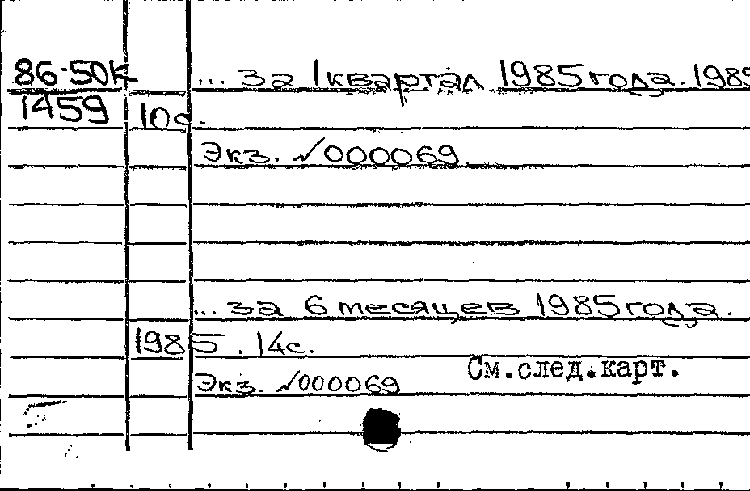 86-50К ... за I квартал 1985 года. 1985
1459 10с.
Экз. №000069
... за 6 месяцев 1985 года.
1985. 14с.
Экз. №000069
См.след.карт.